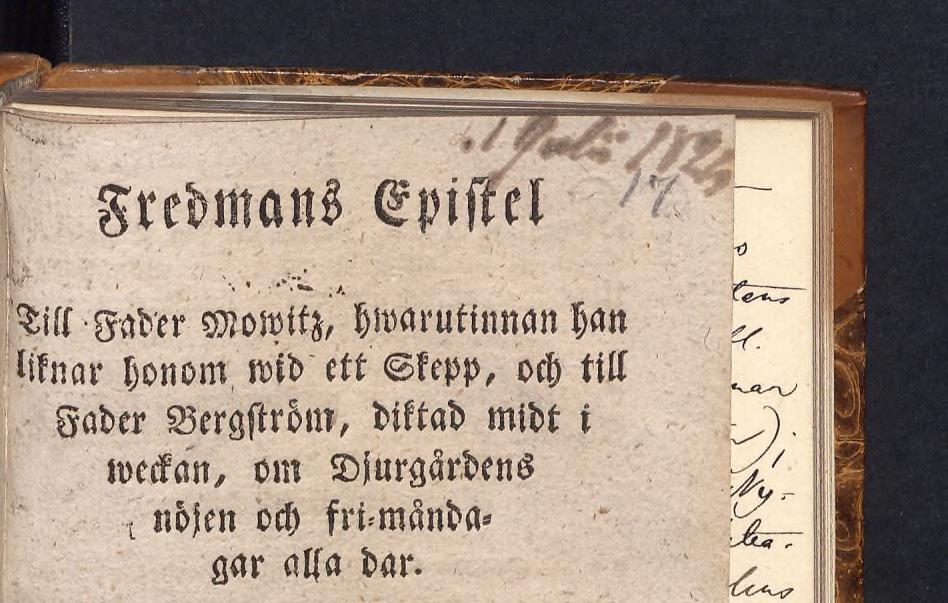 1 Julii 1824
17
Fredmans Epistel
Till Fader Mowitz, hwarutinnan han
liknar honom wid ett Skepp, och till
Fader Bergström, diktad midt i
weckan, om Djurgårdens
nöjen och fri-månda-
gar alla dar.
tens
ll.
nar
Ny-
tea.